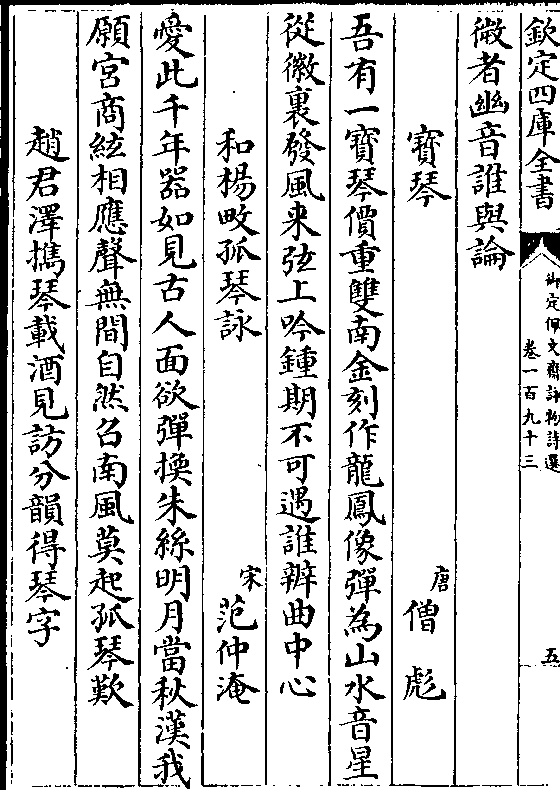 欽定四庫全書
御定佩文齋詠物詩選
卷一百九十三
五
微者幽音誰與論
寶琴
唐
僧彪
吾有一寶琴價重雙南金刻作龍鳳像彈為山水音星
從徽裏發風来弦上吟鍾期不可遇誰辨曲中心
和楊畋孤琴詠
宋
范仲淹
愛此千年器如見古人面欲彈換朱絲明月當秋漢我
願宫商絃相應聲無間自然召南風莫起孤琴歎
趙君澤擕琴載酒見訪分韻得琴字